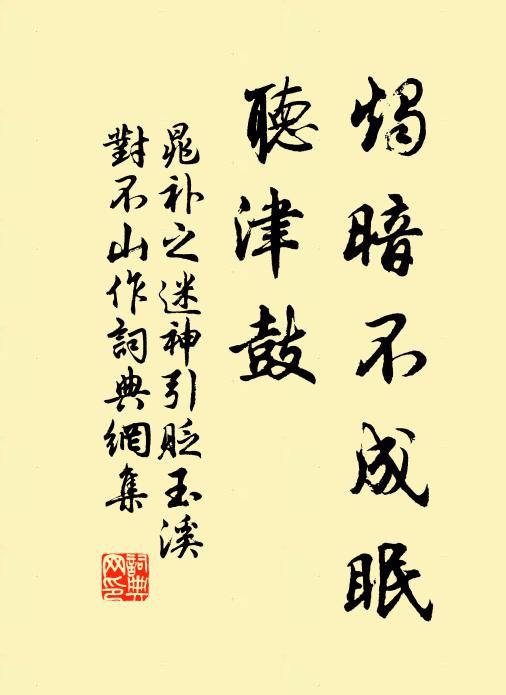 燭暗不成眠
聽津鼓
晁补之迷神引貶玉溪
對不山作詞典網集
詞典
网印